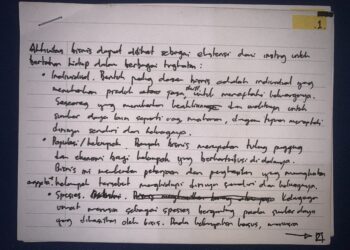 1.
Aktivitas bisnis dapat dilihat sebagai ekstensi dari insting untuk
bertahan hidup dalam berbagai tingkatan:
• Individual. Bentuk paling dasar bisnis adalah individual yang
menawarkan produk atau jasa untuk menafkahi keluarganya.
Seseorang yang menawarkan keahliannya dan waktunya untuk
sumber daya lain seperti uang, makanan, dengan tujuan menafkahi
dirinya sendiri dan keluarganya.
• Populasi/kelompok. Banyak bisnis merupakan tulang punggung
dan ekonomi bagi kelompok yang berkontribusi di dalamnya.
Bisnis ini memberikan pekerjaan dan penghasilan yang memungkinkan
anggota kelompok tersebut menghidupi dirinya sendiri dan keluarganya.
• Spesies. Kelangsungan
umat manusia sebagai spesies bergantung pada sumber daya
yang dihasilkan oleh bisnis. Pada kebanyakan kasus, manusia
[2]